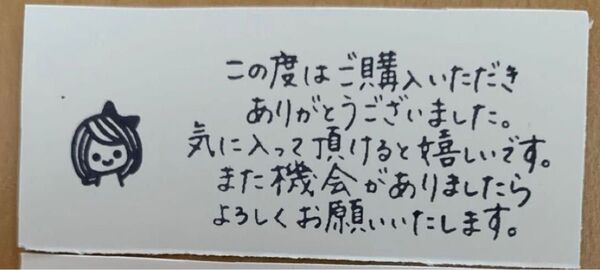 この度はご購入いただき
ありがとうございました。
気に入って頂けると嬉しいです。
また機会がありましたら
よろしくお願いいたします。